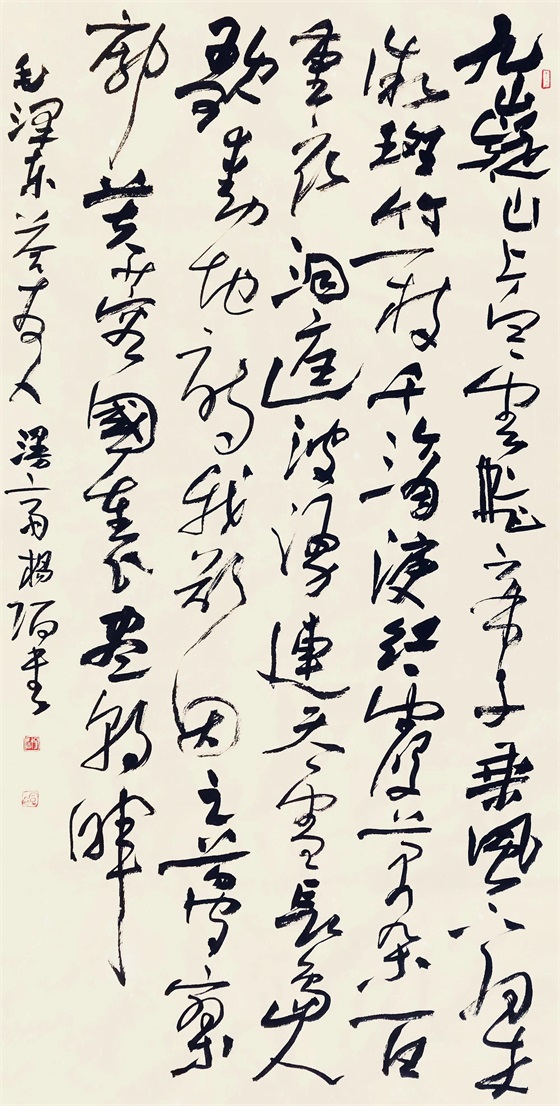 九嶷山上白雲飛帝子乘風下翠
微斑竹一枝千滴淚紅霞萬朵百
重衣洞庭波湧連天雪長島人
歌動地詩我欲因之夢寥
廓芙蓉國裏盡朝暉
毛澤东答友人 漫齋楊陌書